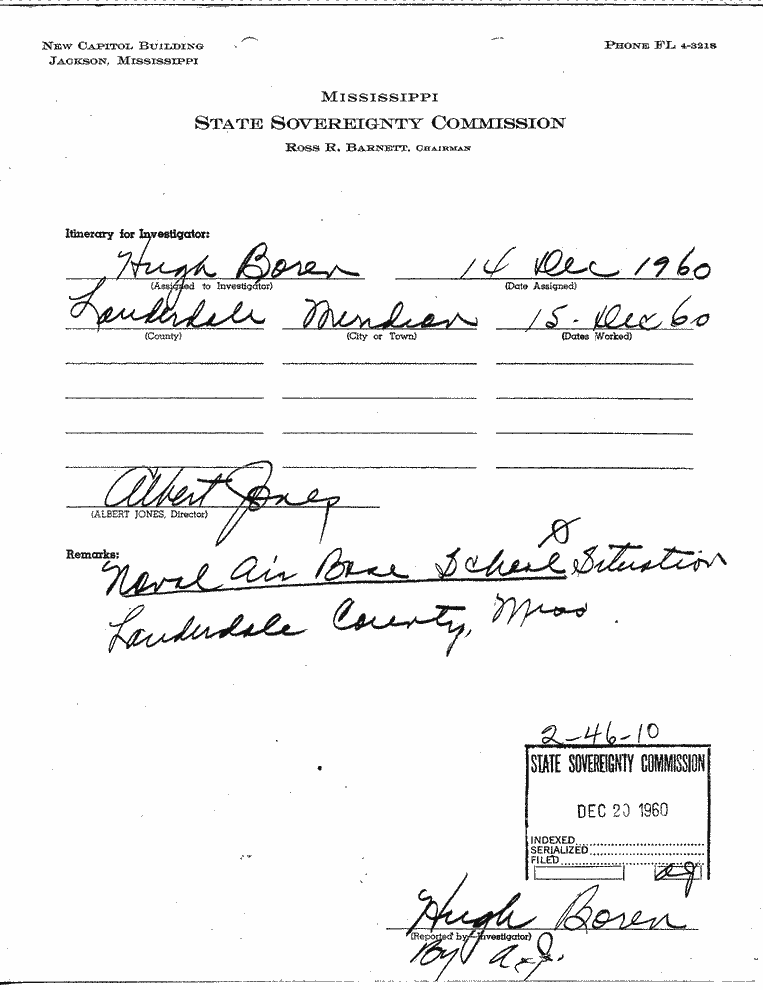 NEW CAPITOL BUILDING
JACKSON, MISSISSIPPI
PHONE FL 4-3218
MISSISSIPPI
STATE SOVEREIGNTY COMMISSION
ROSS R. BARNETT, CHAIRMAN
Itinerary for Investigator:
Hugh Boren 14 Dec 1960
(Assigned to Investigator) (Date Assigned)
Lauderdale Meridian 15-Dec 60
(County) (City or Town) (Dates Worked)
Albert Jones
(ALBERT JONES, Director)
Remarks:
Naval Air Base School Situation
Lauderdale County, Miss
2-46-10
STATE SOVEREIGNTY COMMISSION
DEC 20 1960
INDEXED
SERIALIZED
FILED
aj
Hugh Boren
(Reported by-Investigator)
By A.J.